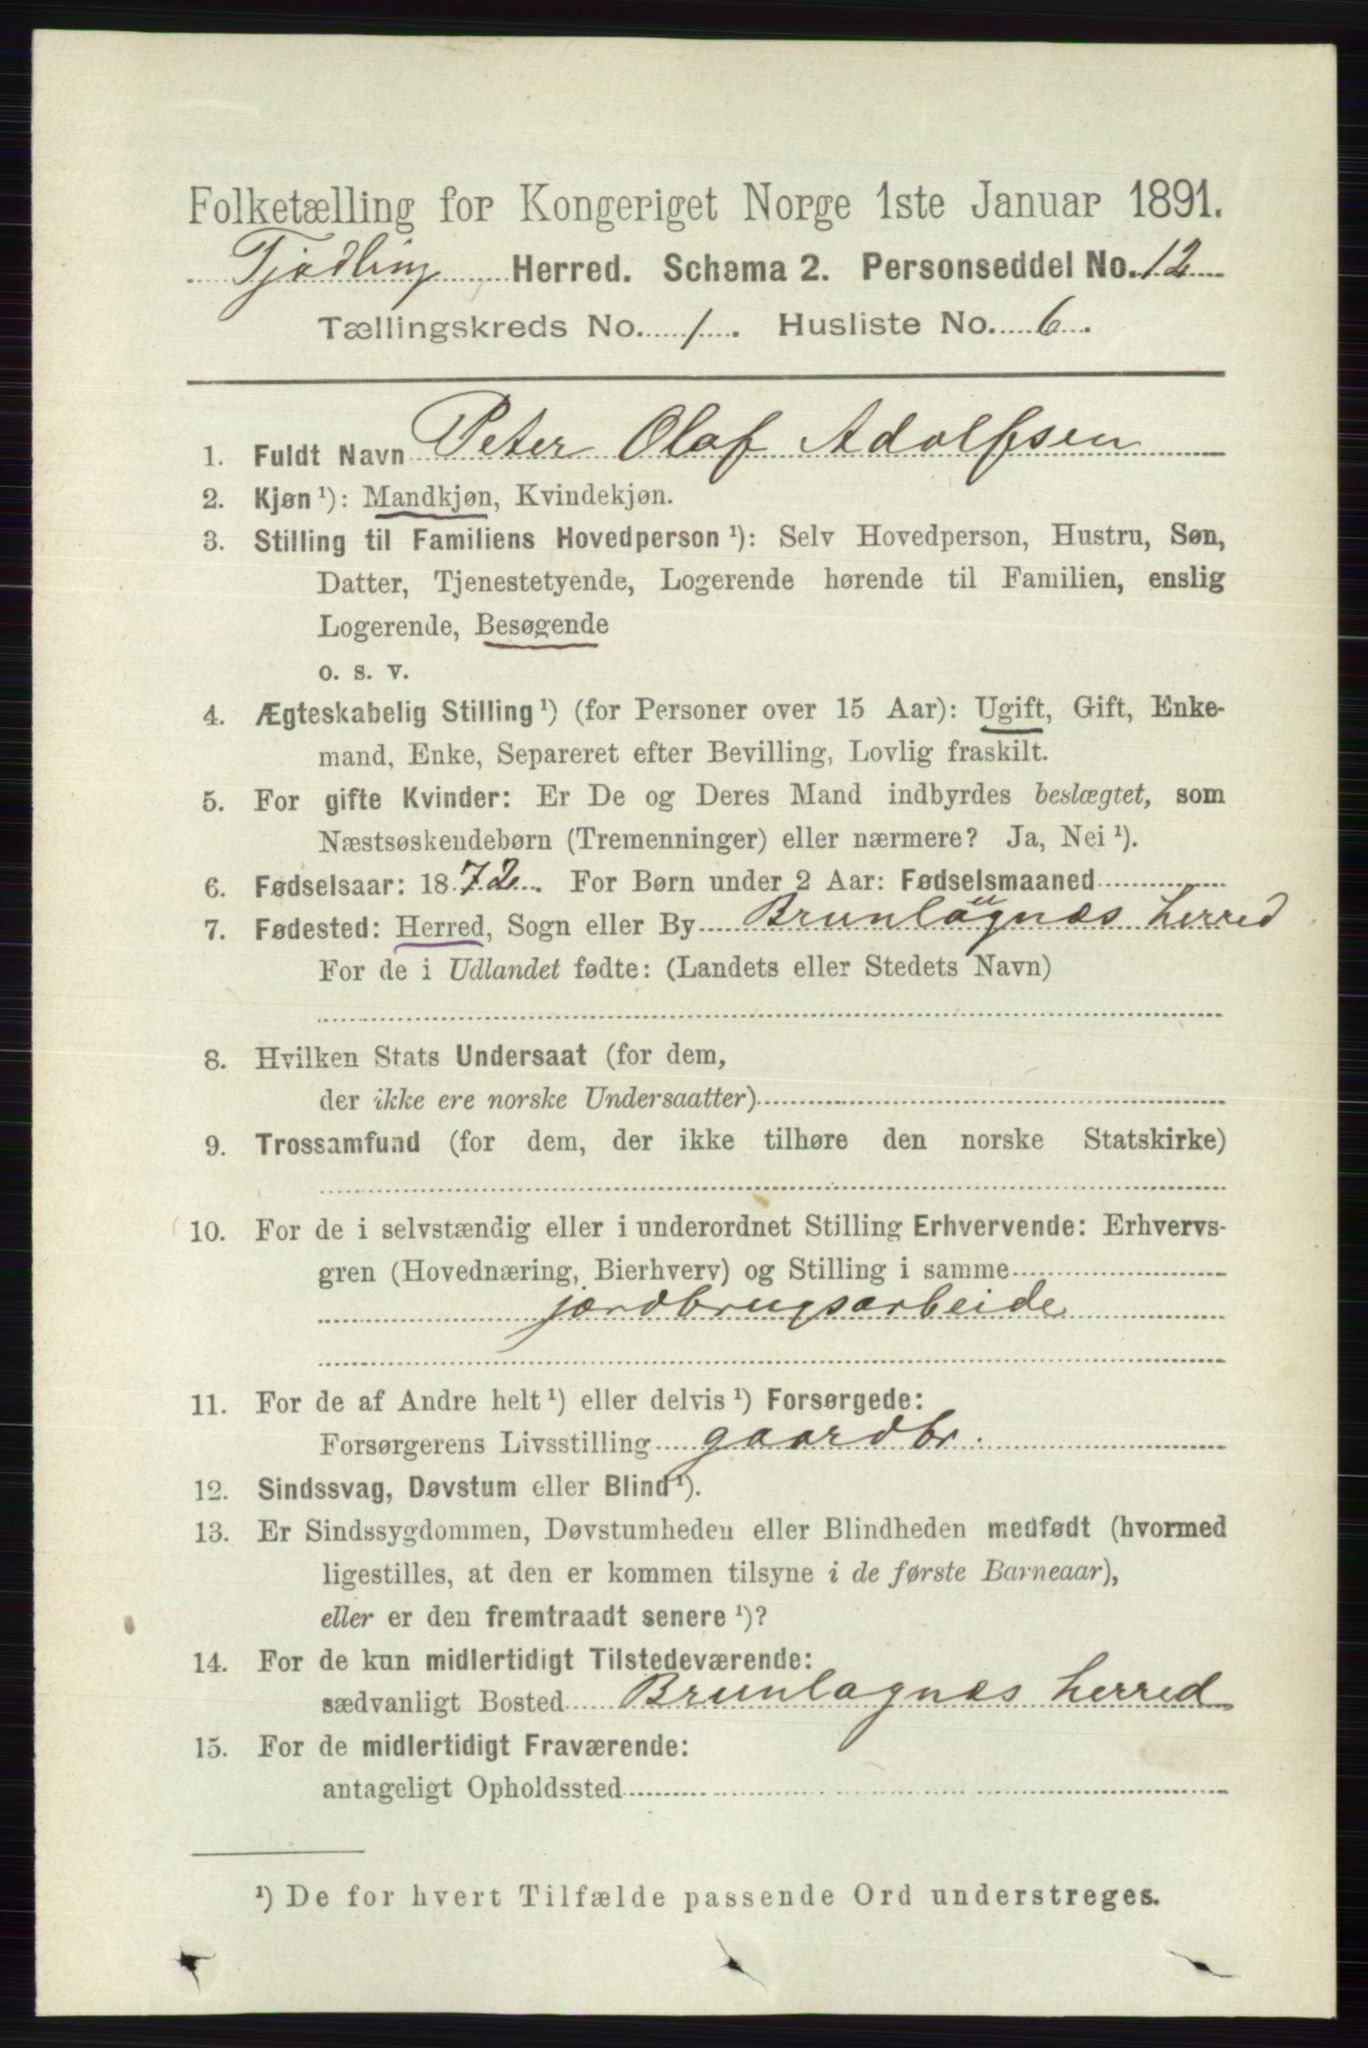 Folketælling for Kongeriget Norge 1ste Januar 1891.
Tjødling Herred. Schema 2. Personseddel No. 12
Tællingskreds No. 1. Husliste No. 6.
1. Fuldt Navn Peter Olaf Adolfsen
2. Kjøn ¹): Mandkjøn, Kvindekjøn.
3. Stilling til Familiens Hovedperson ¹): Selv Hovedperson, Hustru, Søn,
Datter, Tjenestetyende, Logerende hørende til Familien, enslig
Logerende, Besøgende
o. s. v.
4. Ægteskabelig Stilling ¹) (for Personer over 15 Aar): Ugift, Gift, Enke-
mand, Enke, Separeret efter Bevilling, Lovlig fraskilt.
5. For gifte Kvinder: Er De og Deres Mand indbyrdes beslægtet, som
Næstsøskendebørn (Tremenninger) eller nærmere? Ja, Nei ¹).
6. Fødselsaar: 1872. For Børn under 2 Aar: Fødselsmaaned
7. Fødested: Herred, Sogn eller By Brunlagnæs herred
For de i Udlandet fødte: (Landets eller Stedets Navn)
8. Hvilken Stats Undersaat (for dem,
der ikke ere norske Undersaatter)
9. Trossamfund (for dem, der ikke tilhøre den norske Statskirke)
10. For de i selvstændig eller i underordnet Stilling Erhvervende: Erhvervs-
gren (Hovednæring, Bierhverv) og Stilling i samme
jordbrugsarbeide
11. For de af Andre helt ¹) eller delvis ¹) Forsørgede:
Forsørgerens Livsstilling gaardbr.
12. Sindssvag, Døvstum eller Blind ¹).
13. Er Sindssygdommen, Døvstumheden eller Blindheden medfødt (hvormed
ligestilles, at den er kommen tilsyne i de første Barneaar),
eller er den fremtraadt senere ¹)?
14. For de kun midlertidigt Tilstedeværende:
sædvanligt Bosted Brunlagnæs herred
15. For de midlertidigt Fraværende:
antageligt Opholdssted
¹) De for hvert Tilfælde passende Ord understreges.